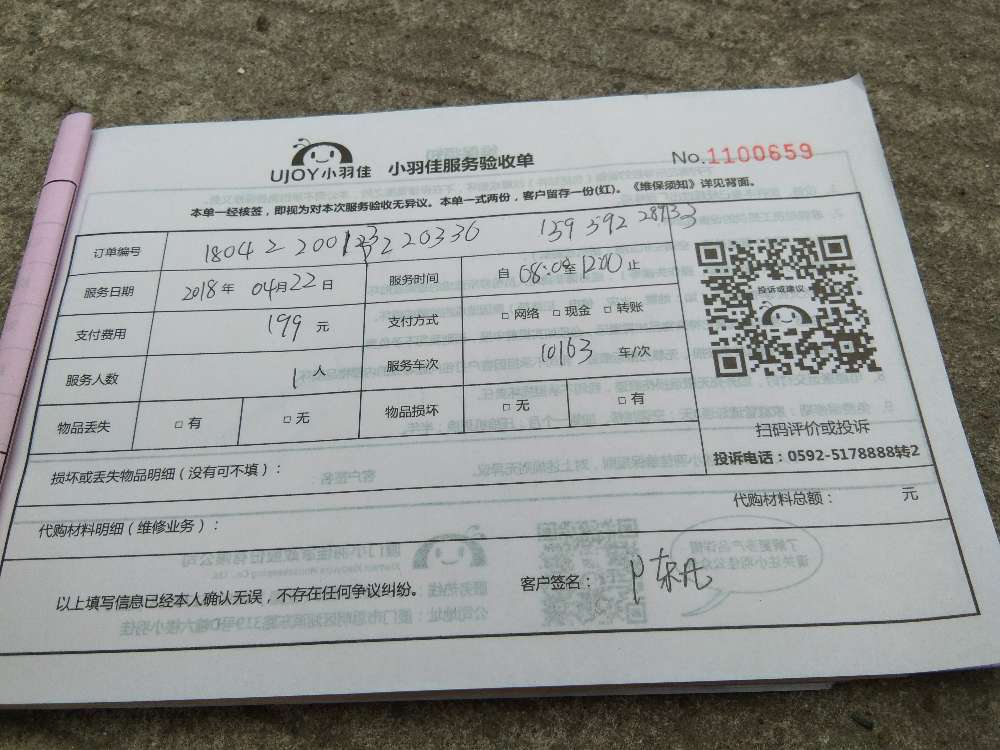 UJOY小羽佳 小羽佳服务验收单 No.1100659
本单一经核签，即视为对本次服务验收无异议。本单一式两份，客户留存一份(红)。《维保须知》详见背面。
订单编号
服务日期 2018年 04月22日 服务时间 自 08:00至1200止
支付费用 199 元 支付方式 □网络 □现金 □转账
服务人数 1 人 服务车次 10163 车/次
物品丢失 □有 □无 物品损坏 □无 □有
投诉或建议
扫码评价或投诉
投诉电话：0592-5178888转2
损坏或丢失物品明细（没有可不填）：
代购材料明细（维修业务）： 代购材料总额： 元
以上填写信息已经本人确认无误，不存在任何争议纠纷。 客户签名：